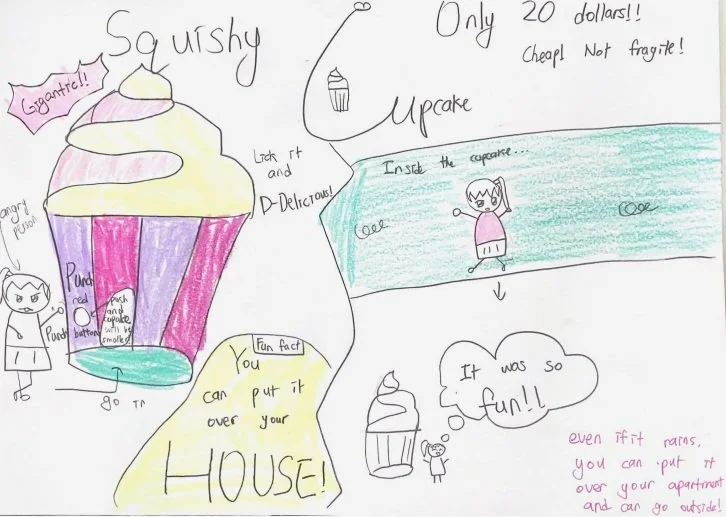 Squishy
Cupcake
Only 20 dollars!!
Cheap! Not fragile!
Gigantic!!
Lick it
and
D-Delicious!
angry
person
Punch
red
Punch button
push
and
cupcake
will be
smaller
go in
Fun fact
You
can put it
over your
HOUSE!
Inside the cupcake...
It was so
fun!!
even if it rains,
you can put it
over your apartment
and can go outside!